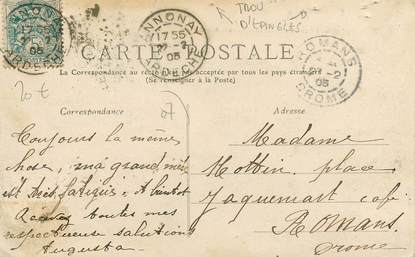 ANNONAY
17 55
05
ARDÈCHE
ANNONAY
17 55
05
ARDÈCHE
TROU
D'ÉPINGLES
ROMANS
05
DROME
CARTE POSTALE
La Correspondance au recto n'est pas acceptée par tous les pays étrangers
(Se renseigner à la Poste)
20 €
Correspondance
Adresse
Toujours la même
chose, ma grand mère
est très fatiguée. A bientôt
toutes mes
respectueuse salutations
Augusta
Madame
place
Jaquemart café
Romans
Drome